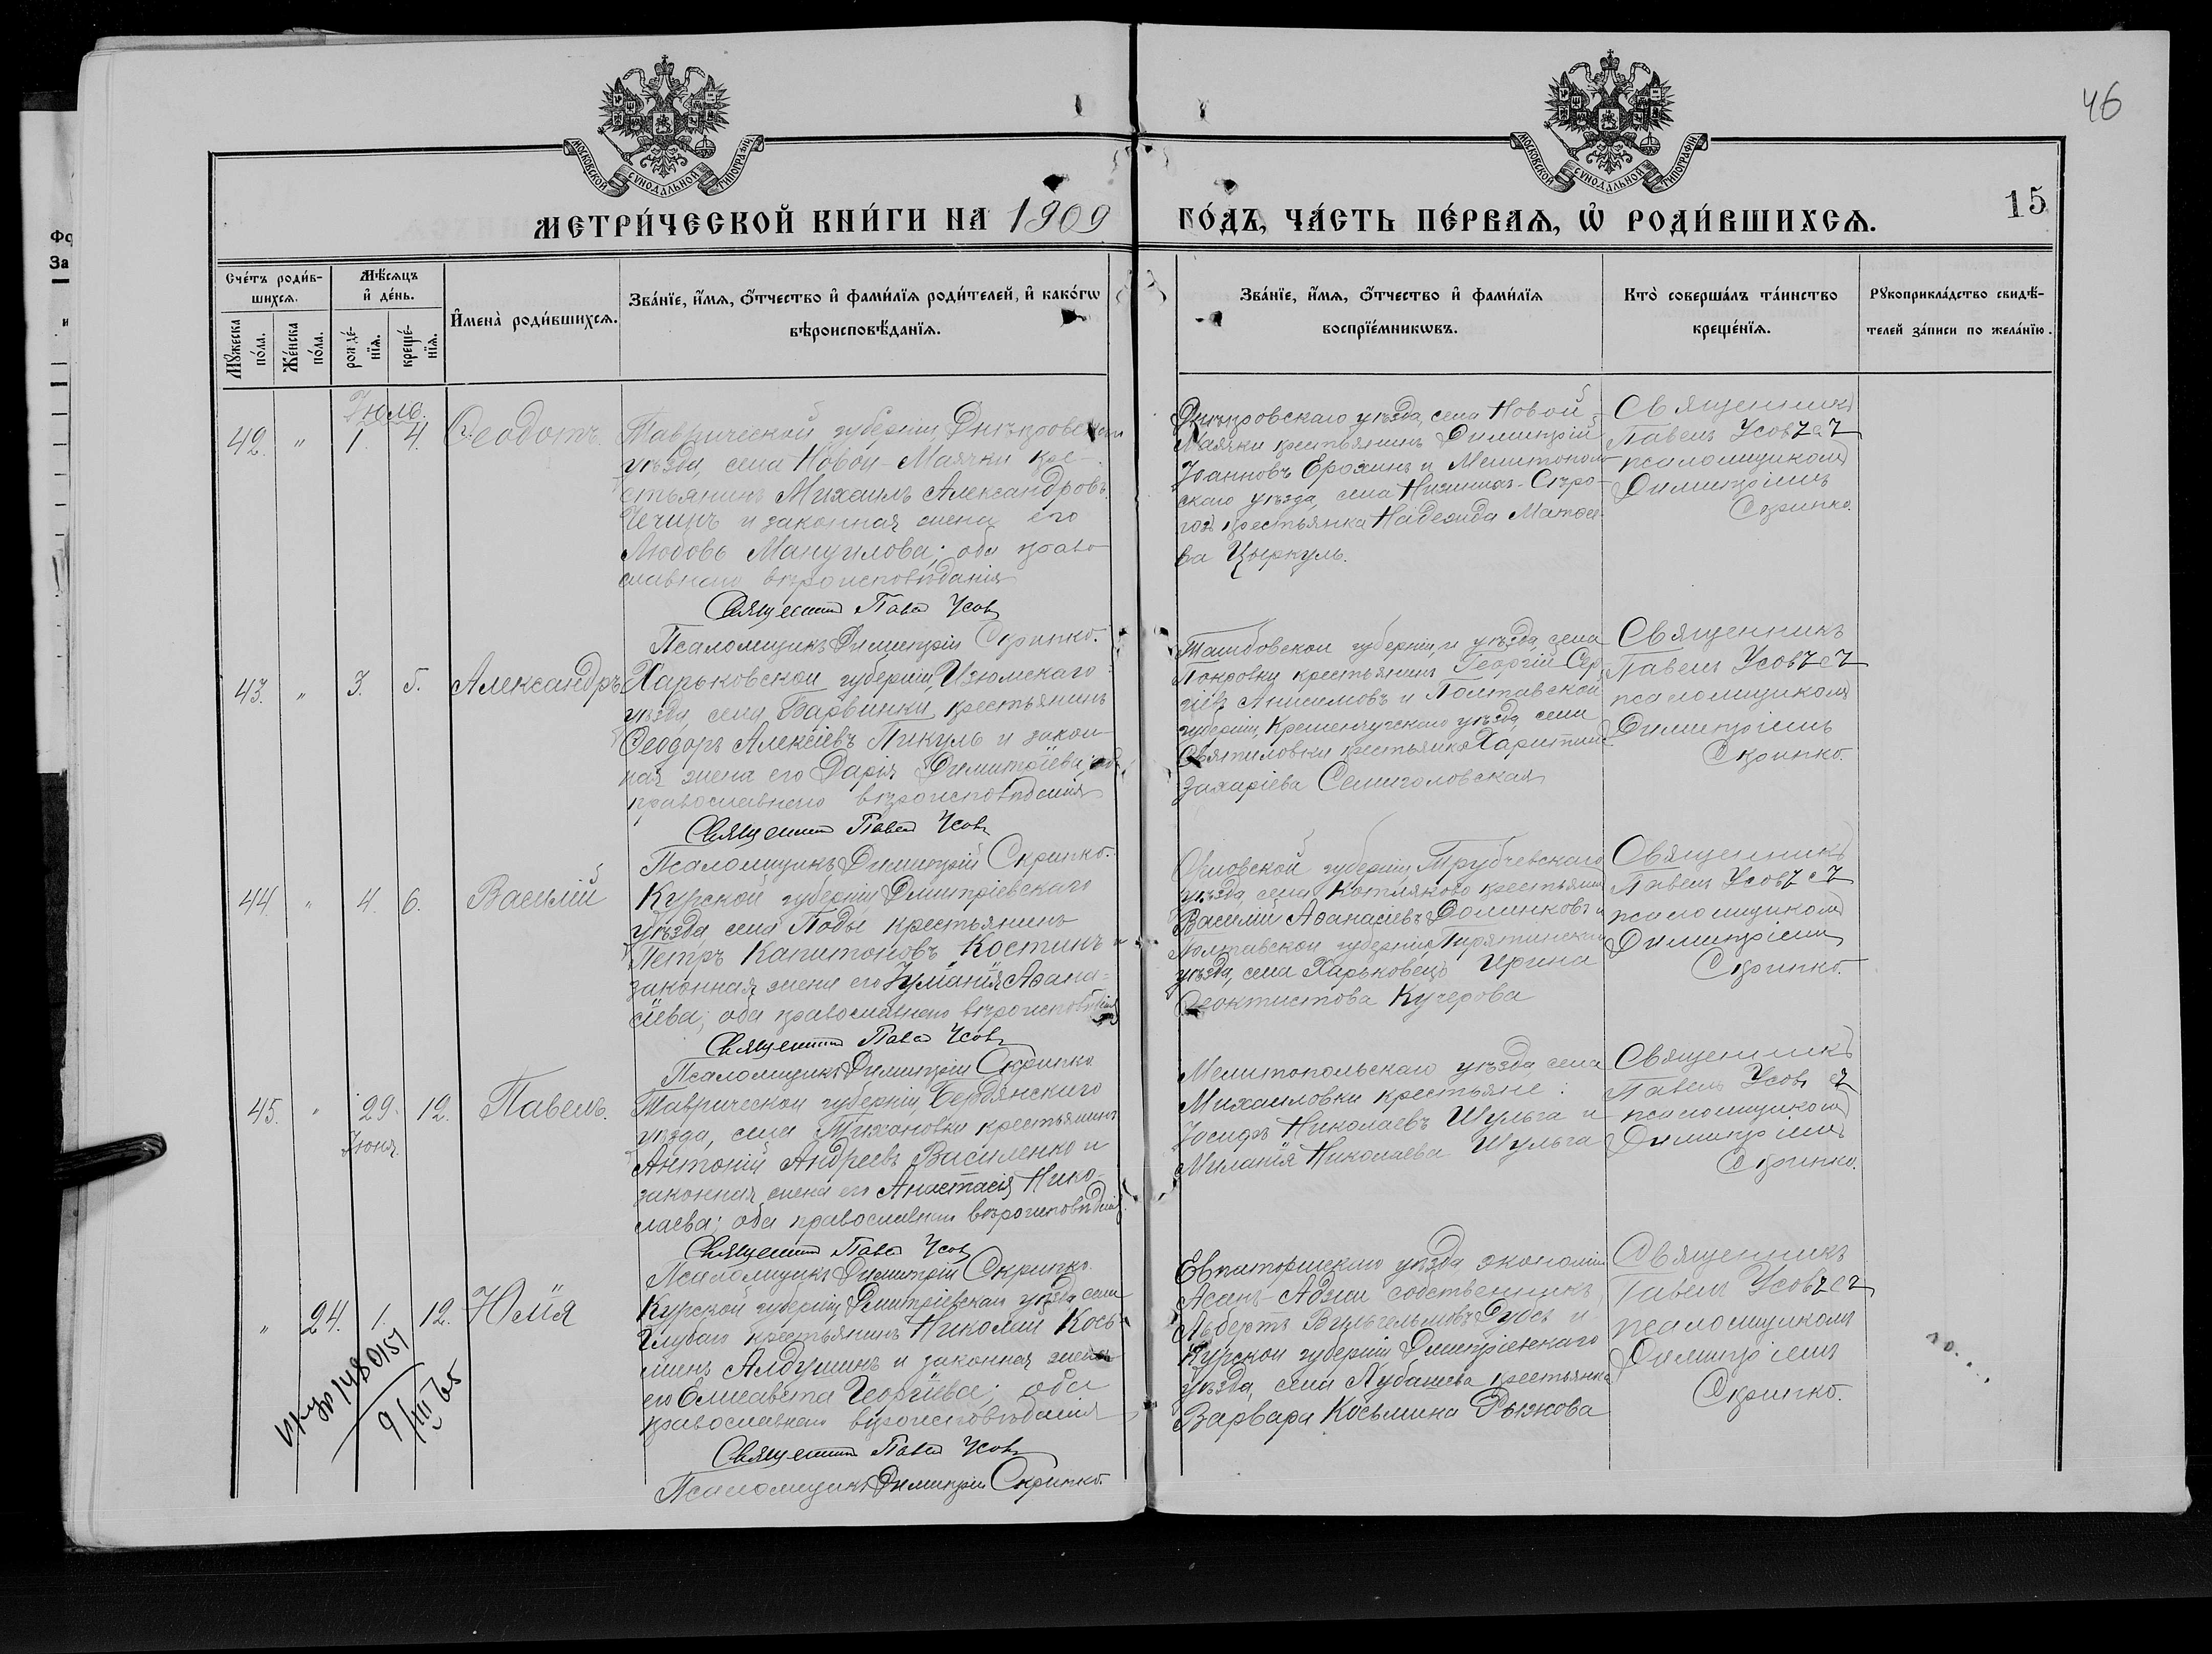 46
МОСКОВСКОЙ СѴНОДАЛЬНОЙ ТИПОГРАФІИ
МОСКОВСКОЙ СѴНОДАЛЬНОЙ ТИПОГРАФІИ
15
МЕТРИ́ЧЕСКОЙ КНИ́ГИ НА 1909
ГО́ДЪ, ЧА́СТЬ ПЕ́РВАѦ, Ѡ҆ РОДИ́ВШИХСѦ.
Сче́тъ роди́в-
шихсѧ.
Мꙋ́жеска по́ла.
Же́нска по́ла.
Мѣ́сѧцъ
и҆ де́нь.
рожде́-
нїѧ.
креще́-
нїѧ.
И҆мена̀ роди́вшихсѧ.
Зва́нїе, и҆́мѧ, ѻ҆́тчество и҆ фами́лїѧ роди́телей, и҆ како́гѡ
вѣроисповѣ́данїѧ.
Зва́нїе, и҆́мѧ, ѻ҆́тчество и҆ фами́лїѧ
воспрїе́мникѡвъ.
Кто̀ соверша́лъ та́инство
креще́нїѧ.
Рꙋкоприкла́дство свидѣ́-
телей за́писи по жела́нїю.
Іюль.
42. " 1. 4. Ѳеодотъ.
Таврической губерніи, Днѣпровскаго
уѣзда, села Новой-Маячки кре-
стьянинъ Михаилъ Александровъ
Чечинъ и законная жена его
Любовь Мануилова; оба право-
славнаго вѣроисповѣданія
Священник Павел Усовъ
Псаломщикъ Димитрій Скрипко.
Днѣпровскаго уѣзда, села Новой-
Маячки крестьянинъ Димитрій
Іоанновъ Ерохинъ и Мелитополь-
скаго уѣзда, села Нижнихъ-Сѣро-
гозъ крестьянка Надежда Матѳее-
ва Цыркуль.
Священникъ
Павелъ Усовъ съ
псаломщикомъ
Димитріемъ
Скрипко.
43. " 3. 5. Александръ
Харьковской губерніи, Изюмскаго
уѣзда, села Барвинки, крестьянинъ
Ѳеодоръ Алексіевъ Пикуль и закон-
ная жена его Дарія Димитріева; оба
православнаго вѣроисповѣданія
Священник Павел Усовъ
Псаломщикъ Димитрій Скрипко.
Тамбовской губерніи, и уѣзда, села
Покровки крестьянинъ Георгій Сер-
гіевъ Анисимовъ и Полтавской
губерніи, Кременчугскаго уѣзда, села
Святиловки крестьянка Харитина
Захаріева Семиголовская
Священникъ
Павелъ Усовъ съ
псаломщикомъ
Димитріемъ
Скрипко.
44. " 4. 6. Василій
Курской губерніи Дмитріевскаго
уѣзда, села Поды крестьянинъ
Петръ Капитоновъ Костинъ и
законная жена его Іуліанія Аѳана-
сіева; оба православнаго вѣроисповѣданія
Священник Павел Усовъ
Псаломщикъ Димитрій Скрипко
Орловской губерніи, Трубчевскаго
уѣзда, села Котляково крестьянинъ
Василій Аѳанасіевъ Доминковъ и
Полтавской губерніи Пирятинскаго
уѣзда, села Харьковецъ Ирина
Ѳеоктистова Кучерова
Священникъ
Павелъ Усовъ съ
псаломщикомъ
Димитріемъ
Скрипко.
45. " 29. 12. Павелъ.
Іюня
Таврической губерніи, Бердянскаго
уѣзда, села Тихоновки крестьянинъ
Антоній Андреевъ Василенко и
законная жена его Анастасія Нико-
лаева; оба православнаго вѣроисповѣданія
Священник Павел Усовъ
Псаломщикъ Димитрій Скрипко.
Мелитопольскаго уѣзда, села
Михаиловки крестьяне:
Іосифъ Николаевъ Шульга и
Миланія Николаева Шульга
Священникъ
Павелъ Усовъ съ
псаломщикомъ
Димитріемъ
Скрипко.
" 24. 1. 12. Юлія
Курской губерніи, Дмитріевскаго уѣзда, села
Глубаго крестьянинъ Николай Кось-
минъ Алдушинъ и законная жена
его Елисавета Георгіева; оба
православнаго вѣроисповѣданія
Священник Павел Усовъ
Псаломщикъ Димитрій Скрипко.
Евпаторійскаго уѣзда экономіи
Асанъ-Аджи собственникъ
Альбертъ Вильгельмовъ Дубсъ и
Курской губерніи Дмитріевскаго
уѣзда, села Лубашева крестьянка
Варвара Косьмина Рыжкова
Священникъ
Павелъ Усовъ съ
псаломщикомъ
Димитріемъ
Скрипко.
1480151
9/VIII 65